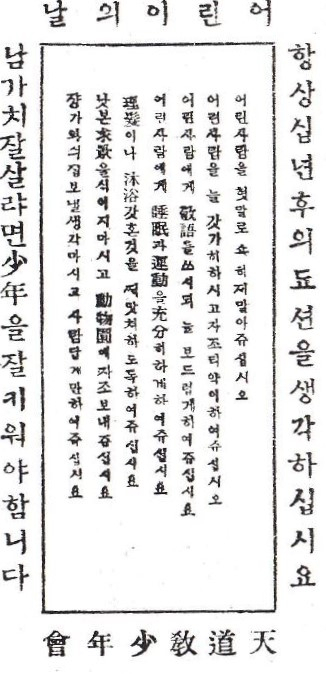 어린이의날
항상십년후의됴션을생각하십시요
어린사람을 헛말로 속히지말아쥬십시오
어린사람을 늘 갓가히하시고자조리약이하여쥬십시오
어린사람에게 敬語를쓰시되 늘 보드럽게하여쥬십시요
어린사람에게 睡眠과運動을充分히하게하여쥬십시요
理髮이나 沐浴갓흔것을 째맛쳐하도록하여쥬십시요
낫본 을식이지마시고 動物園에자조보내쥬십시요
장가와싀집보낼생각마시고 사람답게만하여쥬십시요
남가치잘살랴면少年을잘키워야함니다
天道敎少年會